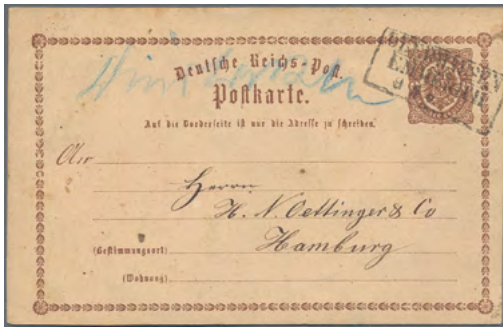 Deutsche Reichs-Post.
Postkarte.
Auf die Vorderseite ist nur die Adresse zu schreiben.
An
Herrn
H. N. Oettinger & Co
Hamburg
(Bestimmungsort)
(Wohnung)